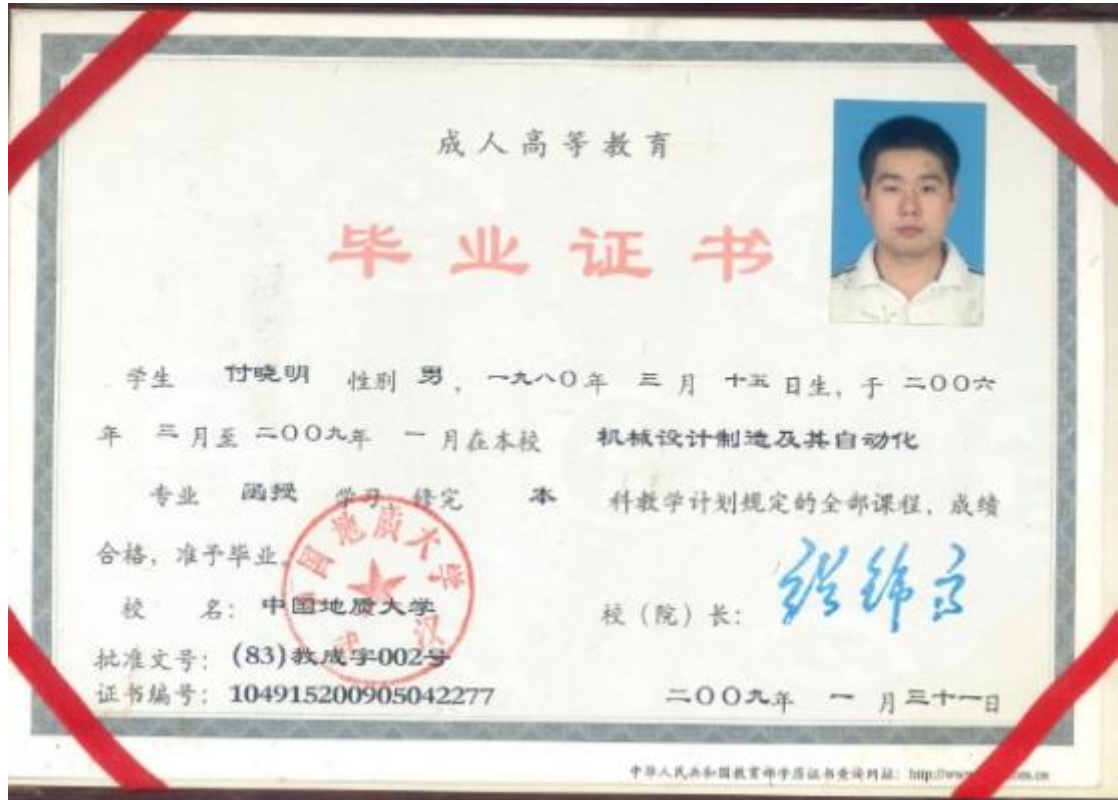 成人高等教育
毕业证书
学生 付晓明 性别 男，一九八〇年 三 月 十五 日生，于 二〇〇六
年 三 月至 二〇〇九年 一 月在本校 机械设计制造及其自动化
专业 函授 学习，修完 本 科教学计划规定的全部课程，成绩
合格，准予毕业。
校 名：中国地质大学
校（院）长：张锦高
批准文号：(83)教成字002号
证书编号：104915200905042277
二〇〇九年 一 月三十一日
中国地质大学
武汉
中华人民共和国教育部学历证书查询网址：http://www
.com.cn